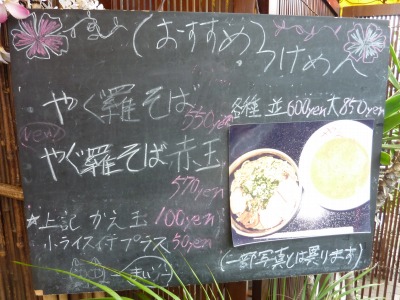 (おすすめ)
つけめん
やぐ羅そば
550yen
各種 並600yen大850yen
new
やぐ羅そば赤玉
570yen
☆上記 かえ玉 100yen
小ライス付プラス50yen
(一部写真とは異ります)